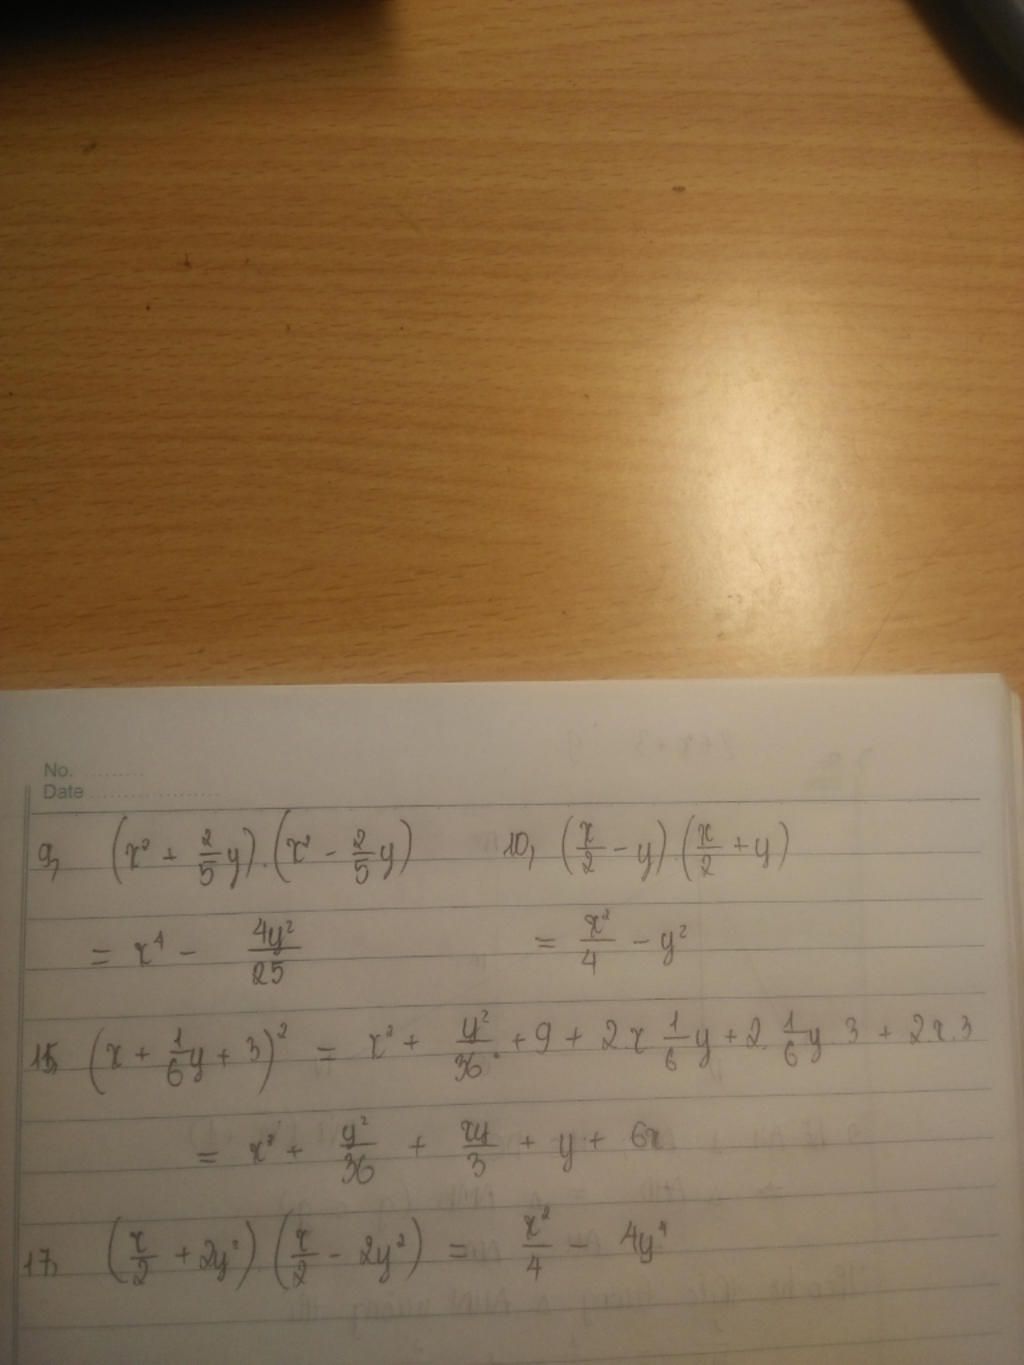 No. ..........
Date ......................
9, (x² + 2/5 y).(x² - 2/5 y) 10, (x/2 - y).(x/2 + y)
= x⁴ - 4y²/25 = x²/4 - y²
15, (x + 1/6 y + 3)² = x² + y²/36 + 9 + 2.x 1/6 y + 2. 1/6 y 3 + 2.x.3
= x² + y²/36 + xy/3 + y + 6x
17, (x/2 + 2y²) (x/2 - 2y²) = x²/4 - 4y⁴